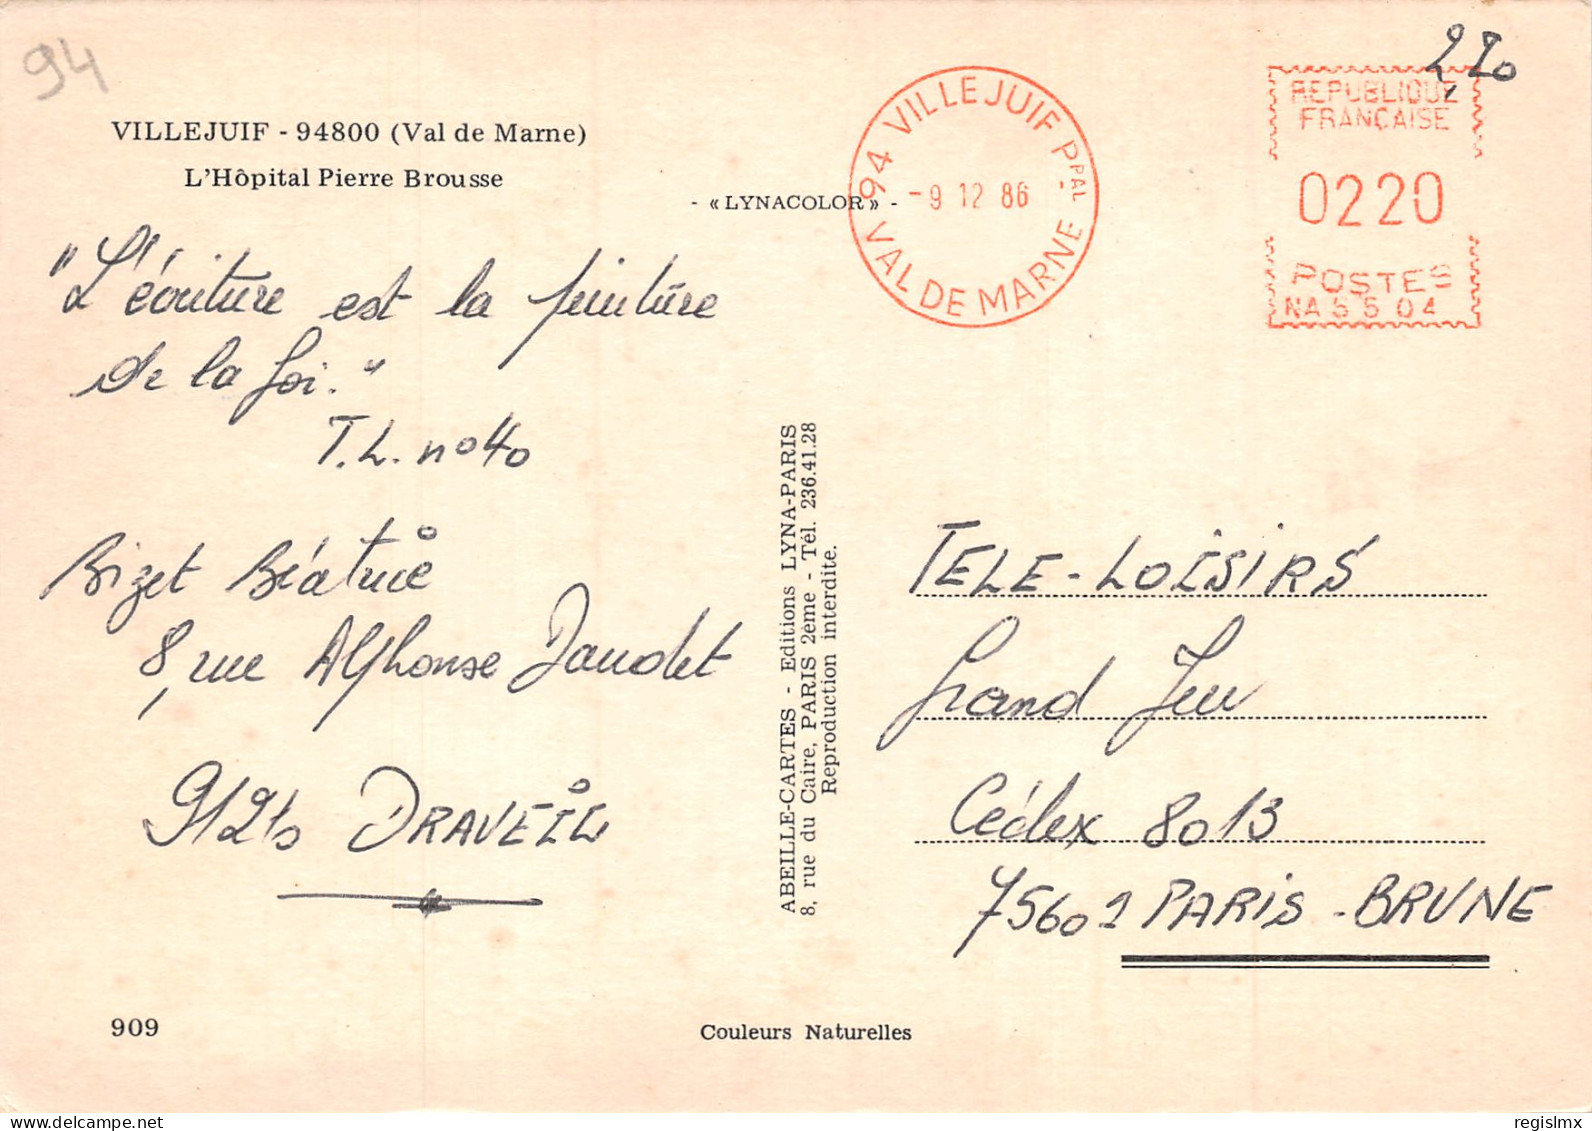 94
VILLEJUIF - 94800 (Val de Marne)
L'Hôpital Pierre Brousse
- « LYNACOLOR » -
94 VILLEJUIF PPAL
- 9 12 86
VAL DE MARNE
2,20
REPUBLIQUE
FRANÇAISE
0220
POSTES
NA 5504
"L'écriture est la peinture
de la foi."
T.L. n° 40
Bizet Béatrice
8, rue Alphonse Daudet
91210 DRAVEIL
ABEILLE-CARTES - Editions LYNA-PARIS
8, rue du Caire, PARIS 2ème - Tél. 236.41.28
Reproduction interdite.
TELE-LOISIRS
Grand Jeu
Cédex 8013
75601 PARIS-BRUNE
909
Couleurs Naturelles
regislmx